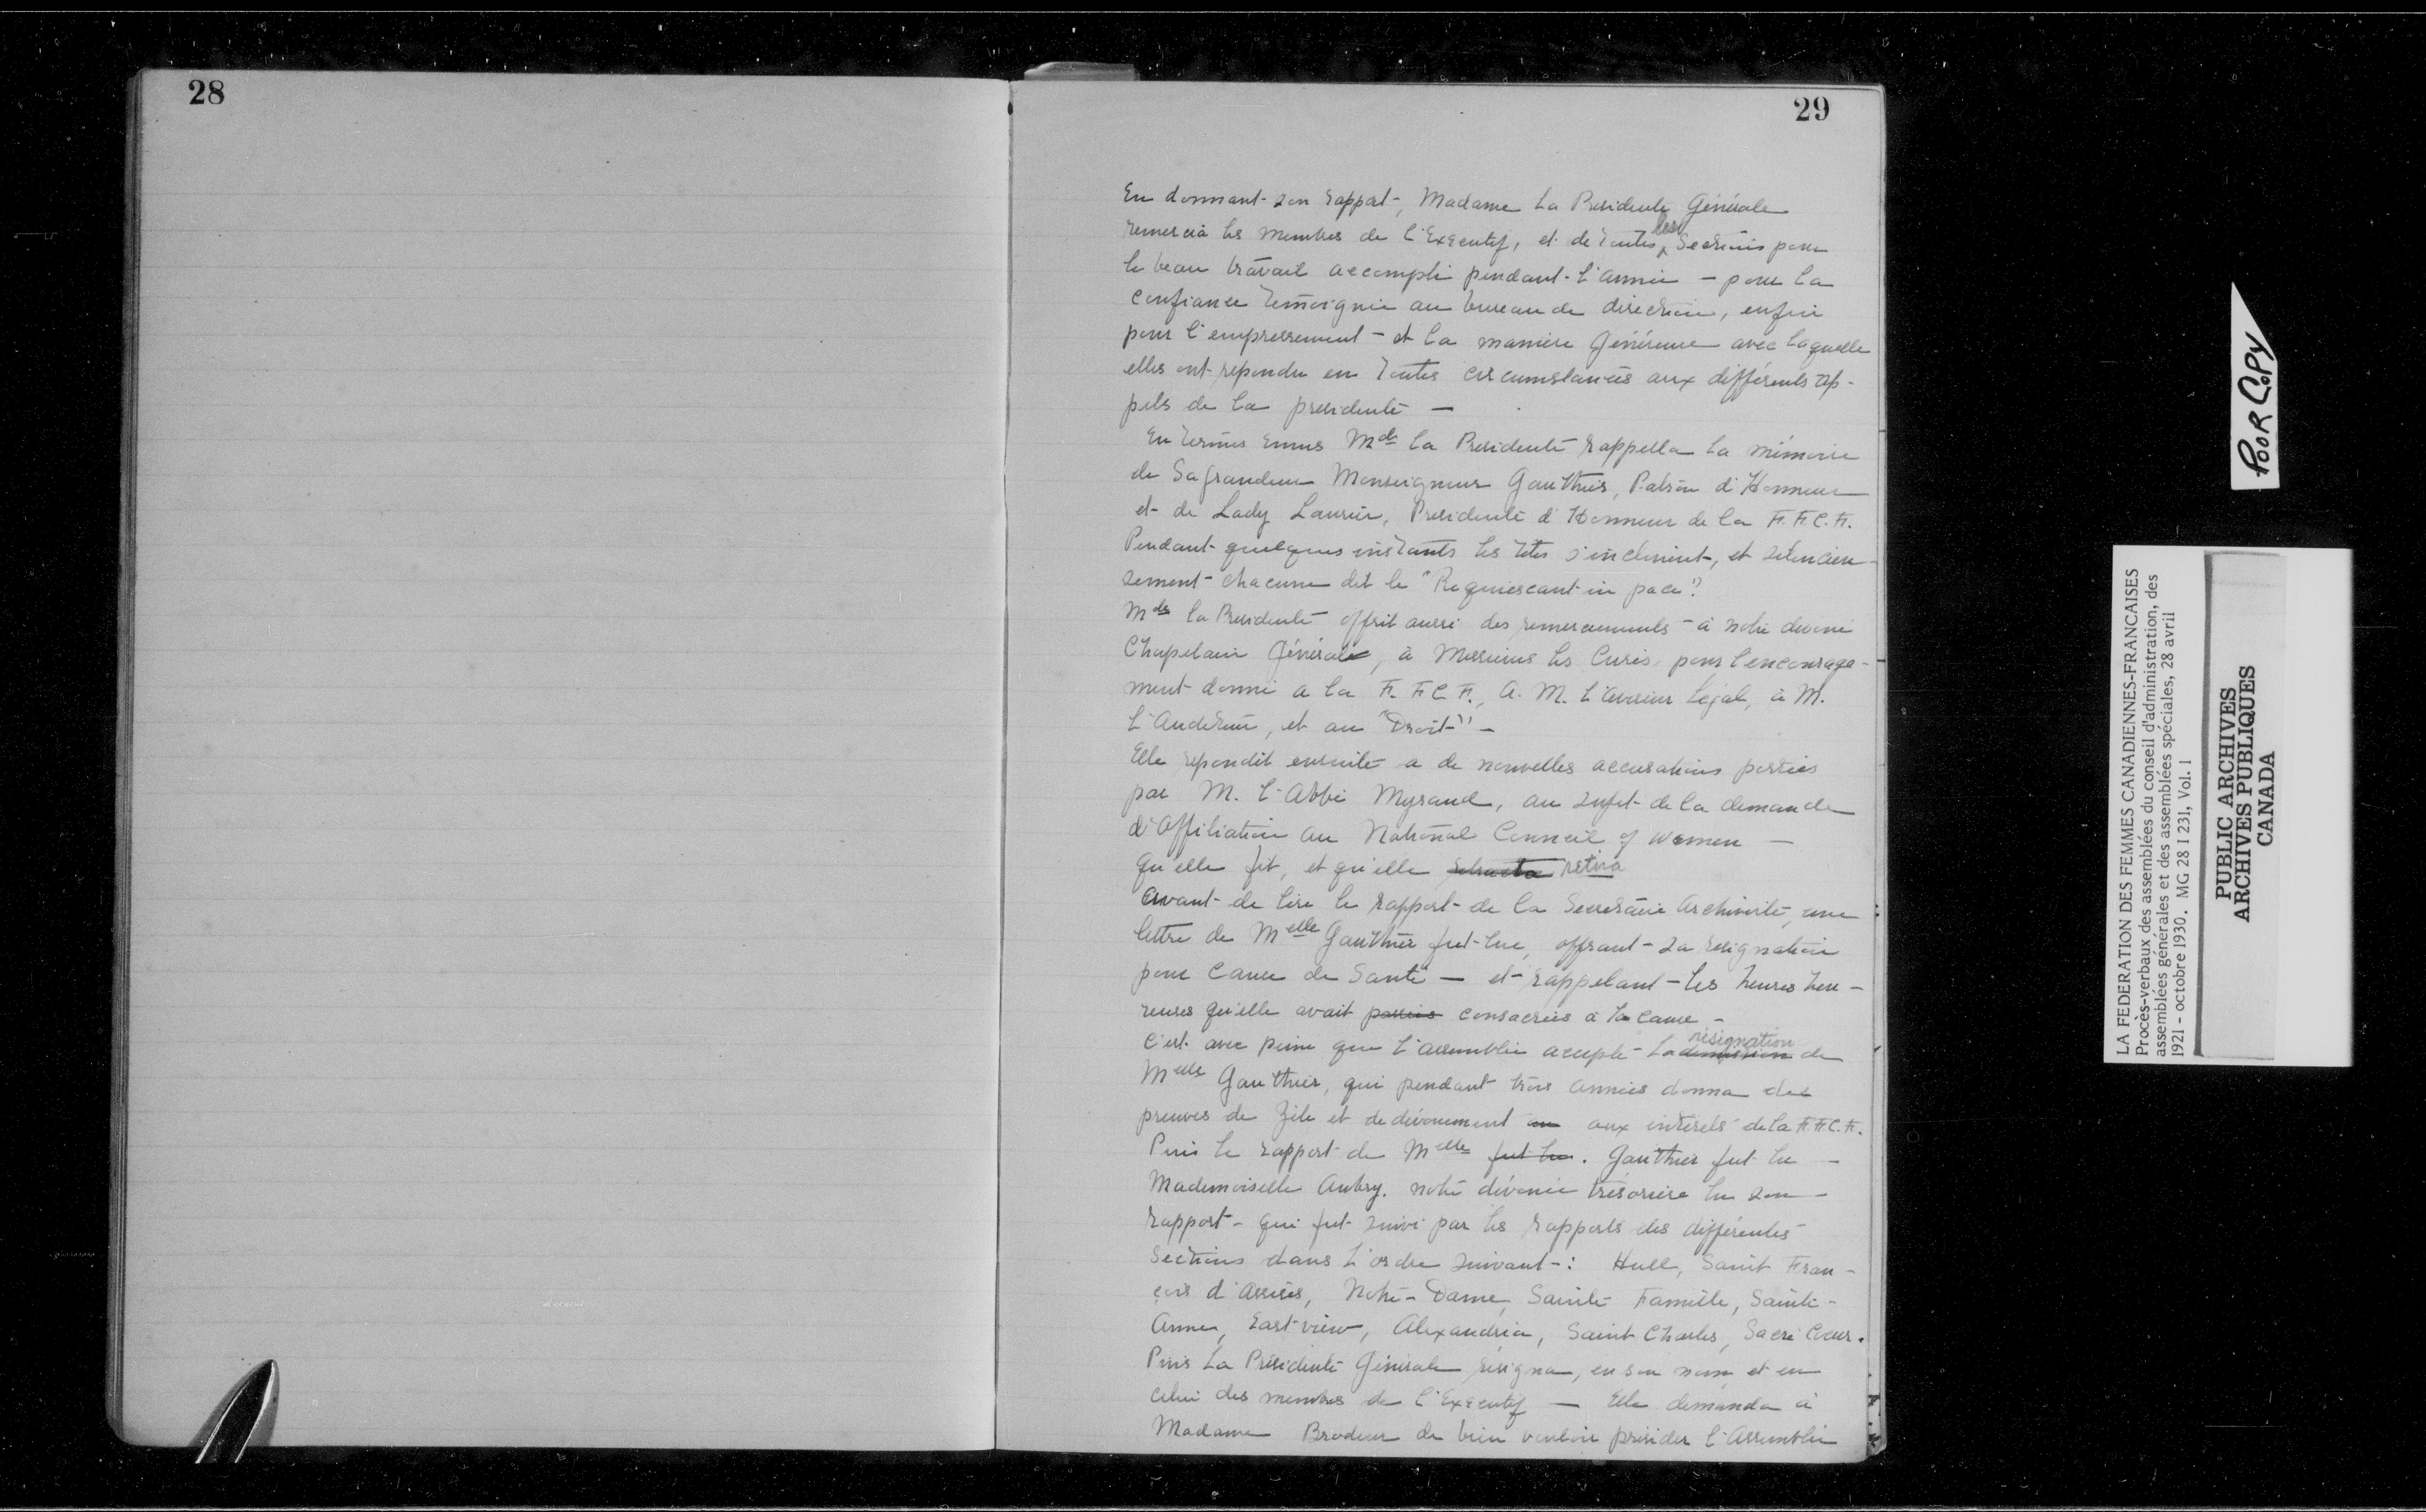 28
29
En donnant son rapport, Madame la Presidente Générale
remercia les membres de l'Executif, et de toutes les Sections pour
le beau travail accompli pendant l'année - pour la
confiance temoignée au bureau de direction, enfin
pour l'empressement et la manière généreuse avec laquelle
elles ont repondu en toutes circumstances aux différents ap-
pels de la presidente -
En termes emus Mde la Presidente rappella la mémoire
de Sa Grandeur Monseigneur Gauthier, Patron d'Honneur
et de Lady Laurier, Presidente d'Honneur de la F.F.C.F.
Pendant quelques instants les têtes s'inclinent, et silencieu-
sement chacune dit le "Requiescant in pace".
Mde la Presidente offrit aussi des remerciements à notre devoué
Chapelain Général, à Messieurs les Curés pour l'encourage-
ment donné a la F.F.C.F., A. M. l'aviseur légal, à M.
l'Auditeur, et au "Droit" -
Elle repondit ensuite a de nouvelles accusations portées
par M. l'Abbé Myrand, au sujet de la demande
d'affiliation au National Council of women -
qu'elle fit, et qu'elle retracta retira
avant de lire le rapport de la Secretaire Archiviste, une
lettre de Melle Gauthier fut lue, offrant sa resignation
pour cause de Santé - et rappelant les heures heu-
reuses qu'elle avait passées consacrées à la cause -
C'est avec peine que l'assemblée accepte la demission résignation de
Melle Gauthier, qui pendant trois années donna des
preuves de zèle et de dévouement au aux intérets de la F.F.C.F.
Puis le rapport de Melle fut lu. Gauthier fut lu -
Mademoiselle Aubry. notre dévouée trésorière lu son
rapport - qui fut suivi par les rapports des différentes
Sections dans l'ordre suivant : Hull, Saint Fran-
çois d'Assises, Notre-Dame, Sainte Famille, Sainte-
Anne, Eastview, Alexandria, Saint Charles, Sacré Coeur.
Puis la Présidente Générale résigna, en son nom et en
celui des membres de l'Executif - Elle demanda à
Madame Brodeur de bien vouloir présider l'Assemblée
POOR COPY
LA FEDERATION DES FEMMES CANADIENNES-FRANCAISES
Procès-verbaux des assemblées du conseil d'administration, des
assemblées générales et des assemblées spéciales, 28 avril
1921 - octobre 1930. MG 28 I 231, Vol. 1
PUBLIC ARCHIVES
ARCHIVES PUBLIQUES
CANADA